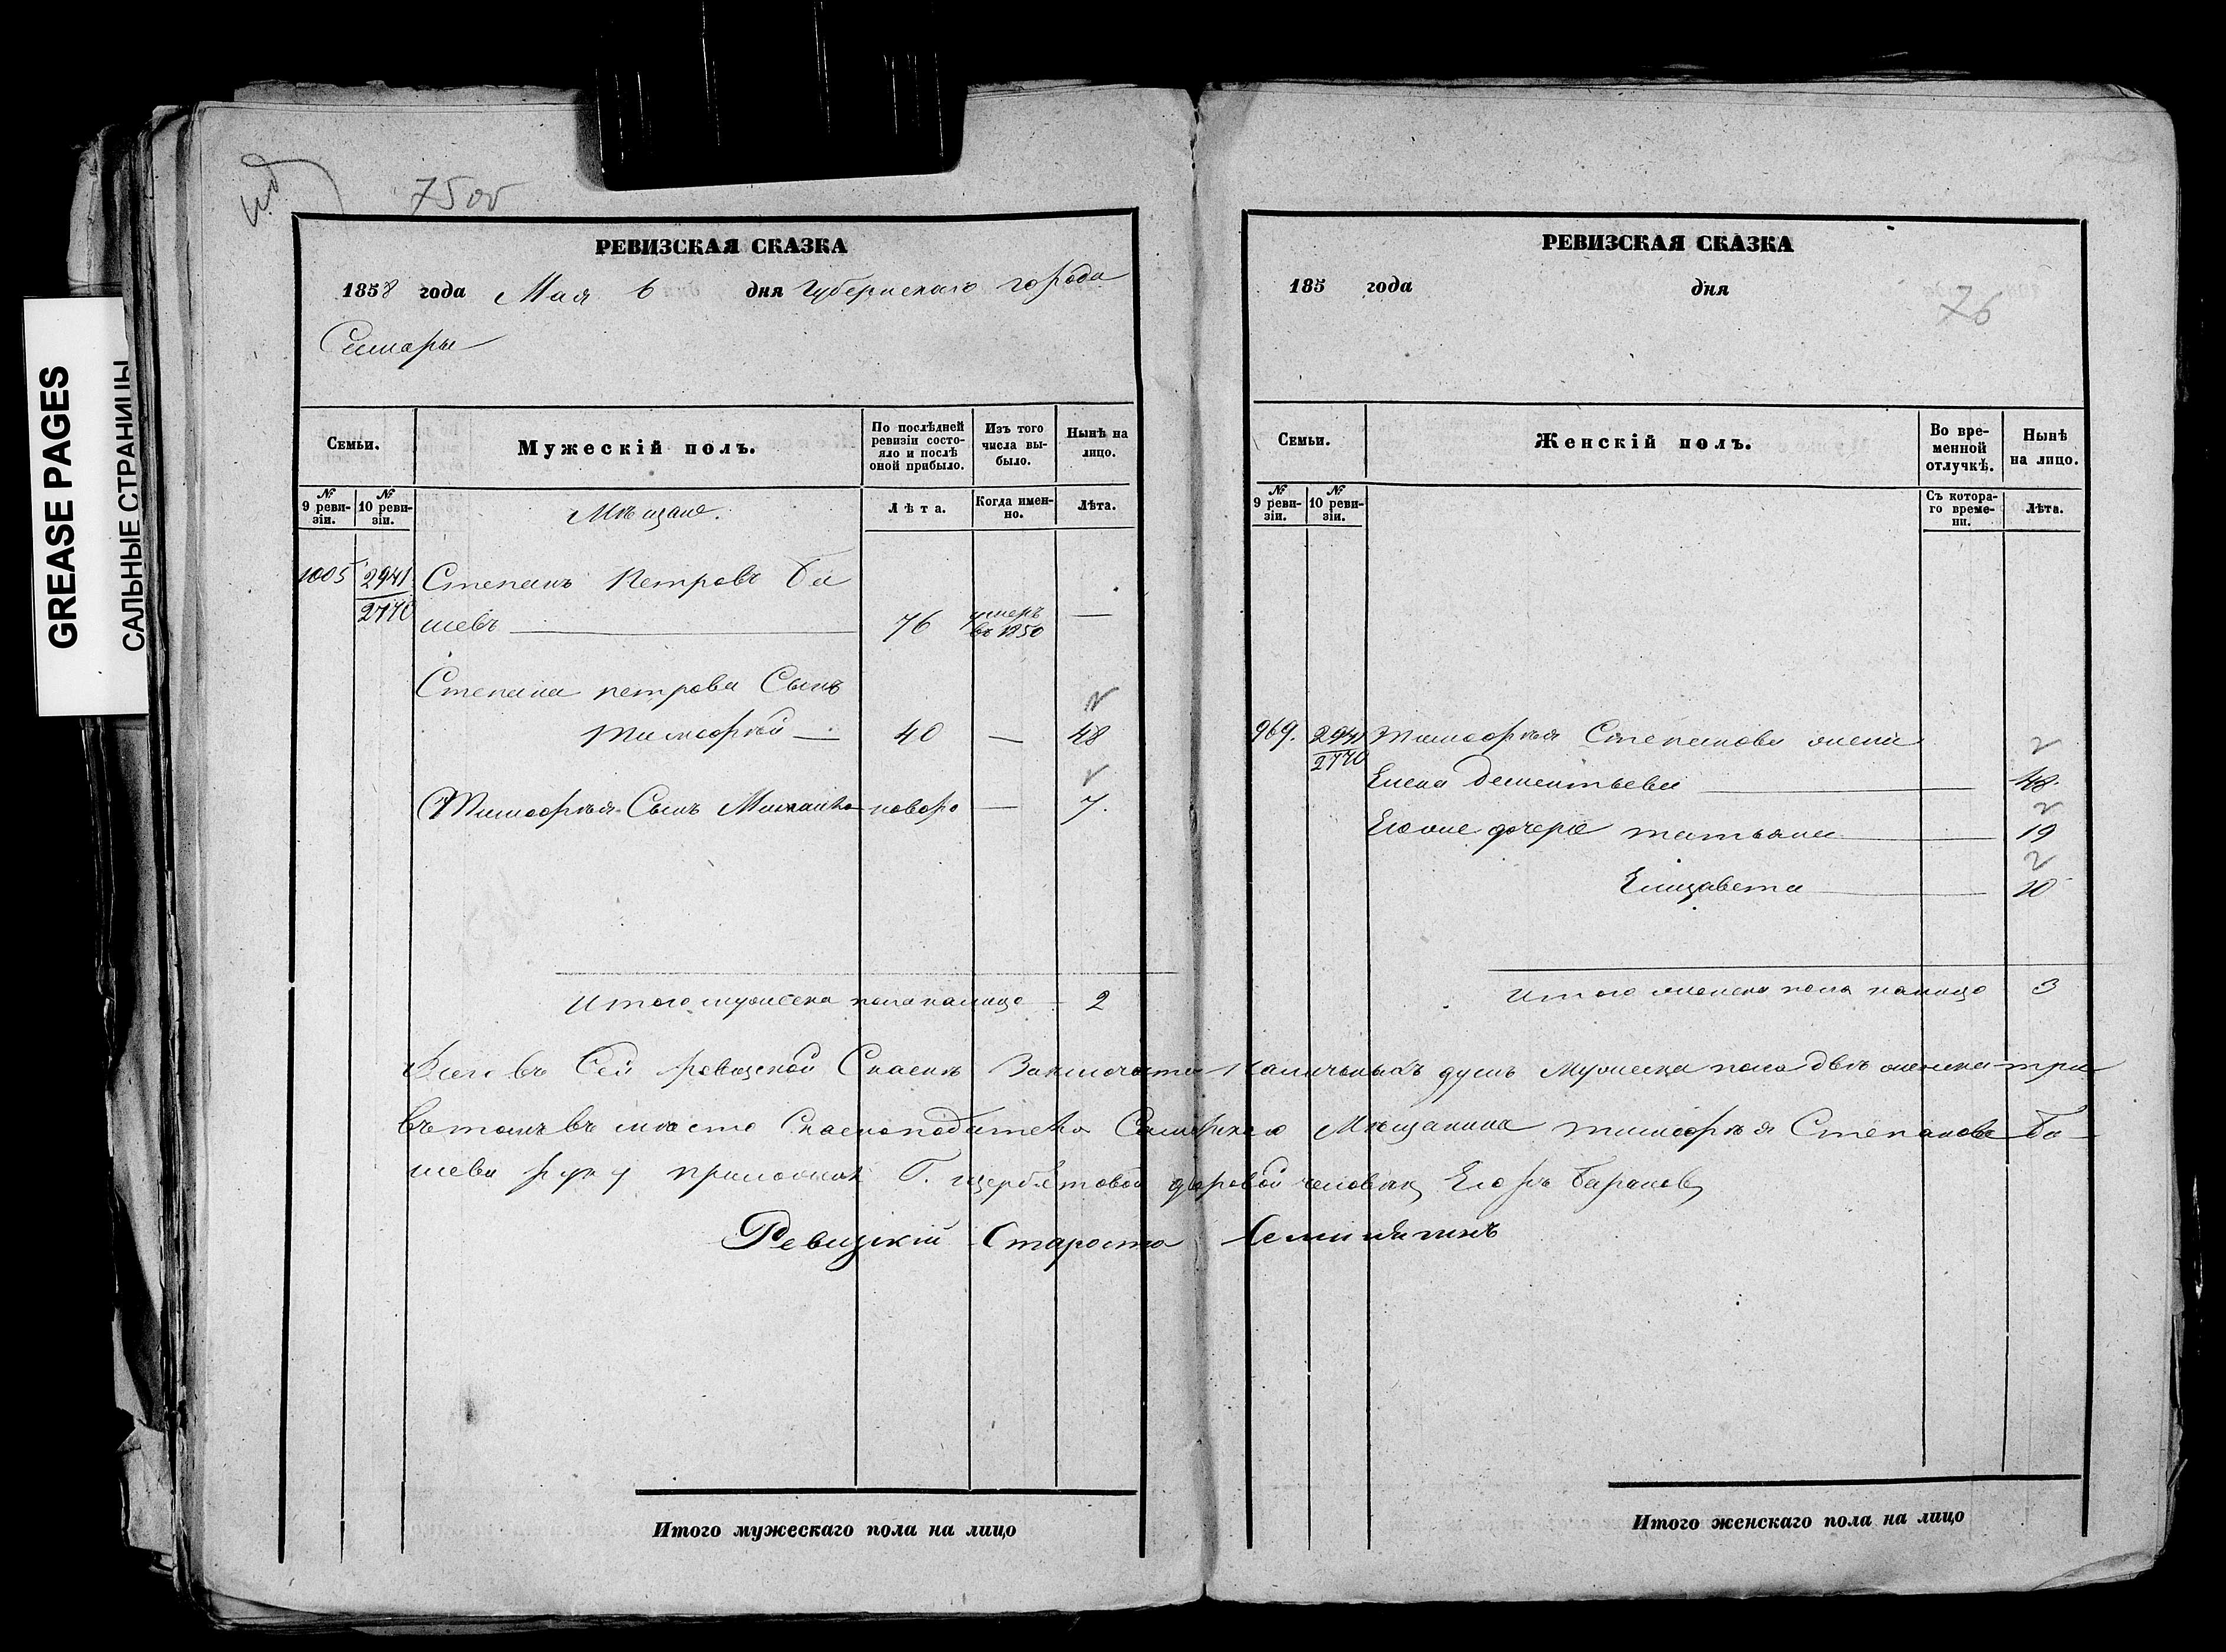 GREASE PAGES
САЛЬНЫЕ СТРАНИЦЫ
75 об
РЕВИЗСКАЯ СКАЗКА
1858 года Мая 6 дня Губернскаго города
Самары
Семьи.
Мужескій полъ.
По послѣдней ревизіи состояло и послѣ оной прибыло.
Изъ того числа выбыло.
Нынѣ на лицо.
№ 9 ревизіи.
№ 10 ревизіи.
Мѣщане.
Лѣта.
Когда именно.
Лѣта.
1005 2941/2770 Степанъ Петровъ Ба
шевъ — 76 умеръ въ 1850 —
Степана петрова Сынъ
Тимофѣй — 40 — 48
Тимофѣя Сынъ Михаила новоро — 7.
Итого мужеска пола налицо — 2
РЕВИЗСКАЯ СКАЗКА
185 года дня
76
Семьи.
Женскій полъ.
Во временной отлучкѣ.
Нынѣ на лицо.
№ 9 ревизіи.
№ 10 ревизіи.
Съ котораго времени.
Лѣта.
969. 2941/2770 Тимофѣя Степанова жена
Елена дементьева — 48.
Его же дочери татьяна — 19
Елизавета — 10
Итого женска пола налицо 3
Всего въ Сей ревизской Сказкѣ Заключается Наличныхъ душъ мужеска пола двѣ женска три
Въ томъ въ место Сказкоподателя Самарскаго Мѣщанина тимофѣя Степанова Ба
шева руку приложилъ Г. щербетовой дворовой человѣкъ Егоръ Барановъ
Ревизкій Староста
Итого мужескаго пола на лицо
Итого женскаго пола на лицо